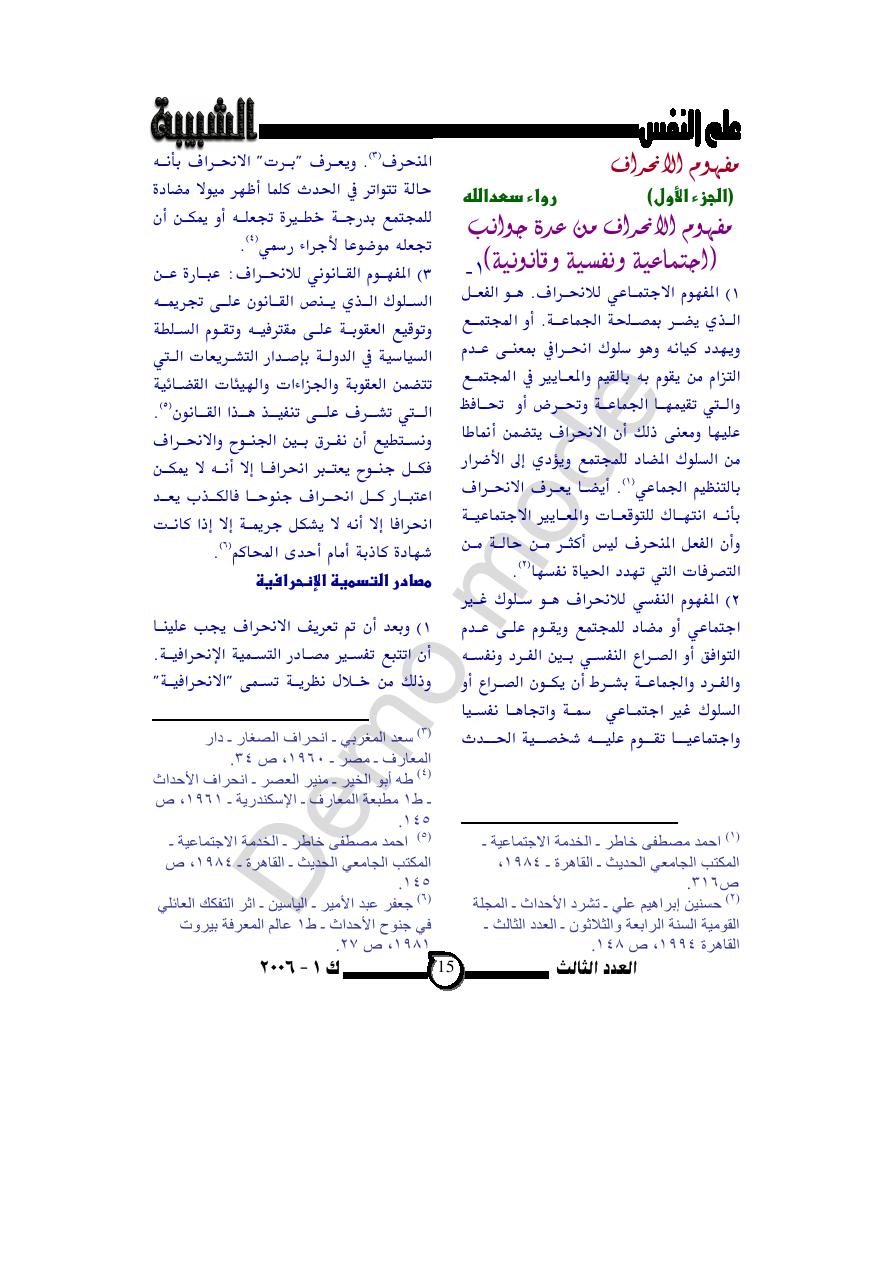 علم النفس
الشبيبة
مفهوم الانحراف
(الجزء الأول) رواء سعدالله
مفهوم الانحراف من عدة جوانب
(اجتماعية ونفسية وقانونية) ١-
١) المفهوم الاجتماعي للانحراف. هو الفعل
الذي يضر بمصلحة الجماعة. أو المجتمع
ويهدد كيانه وهو سلوك انحرافي بمعنى عدم
التزام من يقوم به بالقيم والمعايير في المجتمع
والتي تقيمها الجماعة وتحرض أو تحافظ
عليها ومعنى ذلك أن الانحراف يتضمن أنماطا
من السلوك المضاد للمجتمع ويؤدي إلى الأضرار
بالتنظيم الجماعي(١). أيضا يعرف الانحراف
بأنه انتهاك للتوقعات والمعايير الاجتماعية
وأن الفعل المنحرف ليس أكثر من حالة من
التصرفات التي تهدد الحياة نفسها(٢).
٢) المفهوم النفسي للانحراف هو سلوك غير
اجتماعي أو مضاد للمجتمع ويقوم على عدم
التوافق أو الصراع النفسي بين الفرد ونفسه
والفرد والجماعة بشرط أن يكون الصراع أو
السلوك غير اجتماعي سمة واتجاها نفسيا
واجتماعيا تقوم عليه شخصية الحدث
(١) احمد مصطفى خاطر ـ الخدمة الاجتماعية ـ
المكتب الجامعي الحديث ـ القاهرة ـ ١٩٨٤،
ص٣١٦.
(٢) حسنين إبراهيم علي ـ تشرد الأحداث ـ المجلة
القومية السنة الرابعة والثلاثون ـ العدد الثالث ـ
القاهرة ١٩٩٤، ص ١٤٨.
المنحرف(٣). ويعرف "برت" الانحراف بأنه
حالة تتواتر في الحدث كلما أظهر ميولا مضادة
للمجتمع بدرجة خطيرة تجعله أو يمكن أن
تجعله موضوعا لأجراء رسمي(٤).
٣) المفهوم القانوني للانحراف: عبارة عن
السلوك الذي ينص القانون على تجريمه
وتوقيع العقوبة على مقترفيه وتقوم السلطة
السياسية في الدولة بإصدار التشريعات التي
تتضمن العقوبة والجزاءات والهيئات القضائية
التي تشرف على تنفيذ هذا القانون(٥).
ونستطيع أن نفرق بين الجنوح والانحراف
فكل جنوح يعتبر انحرافا إلا أنه لا يمكن
اعتبار كل انحراف جنوحا فالكذب يعد
انحرافا إلا أنه لا يشكل جريمة إلا إذا كانت
شهادة كاذبة أمام أحدى المحاكم(٦).
مصادر التسمية الإنحرافية
١) وبعد أن تم تعريف الانحراف يجب علينا
أن اتتبع تفسير مصادر التسمية الإنحرافية.
وذلك من خلال نظرية تسمى "الانحرافية"
(٣) سعد المغربي ـ انحراف الصغار ـ دار
المعارف ـ مصر ـ ١٩٦٠، ص ٣٤.
(٤) طه أبو الخير ـ منير العصر ـ انحراف الأحداث
ـ ط١ مطبعة المعارف ـ الإسكندرية ـ ١٩٦١، ص
١٤٥.
(٥) احمد مصطفى خاطر ـ الخدمة الاجتماعية ـ
المكتب الجامعي الحديث ـ القاهرة ـ ١٩٨٤، ص
١٤٥.
(٦) جعفر عبد الأمير ـ الياسين ـ اثر التفكك العائلي
في جنوح الأحداث ـ ط١ عالم المعرفة بيروت
١٩٨١، ص ٢٧.
العدد الثالث
15
ك ١ - ٢٠٠٦
Demo mode